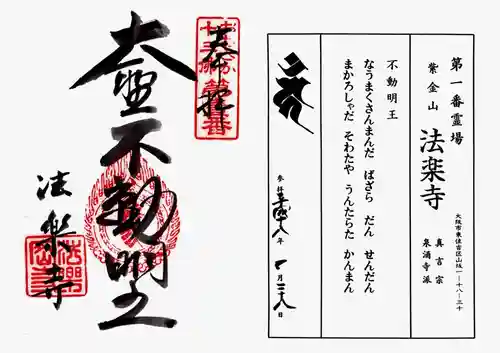 奉拝
大聖不動明王
法楽寺
第一番霊場
紫金山 法楽寺
大阪市東住吉区山坂一ー十八ー三十
真言宗
泉涌寺派
不動明王
なうまくさんまんだ ばざら だん せんだん
まかろしゃだ そわたや うんたらた かんまん
参拝平成十八年
七月二十八日